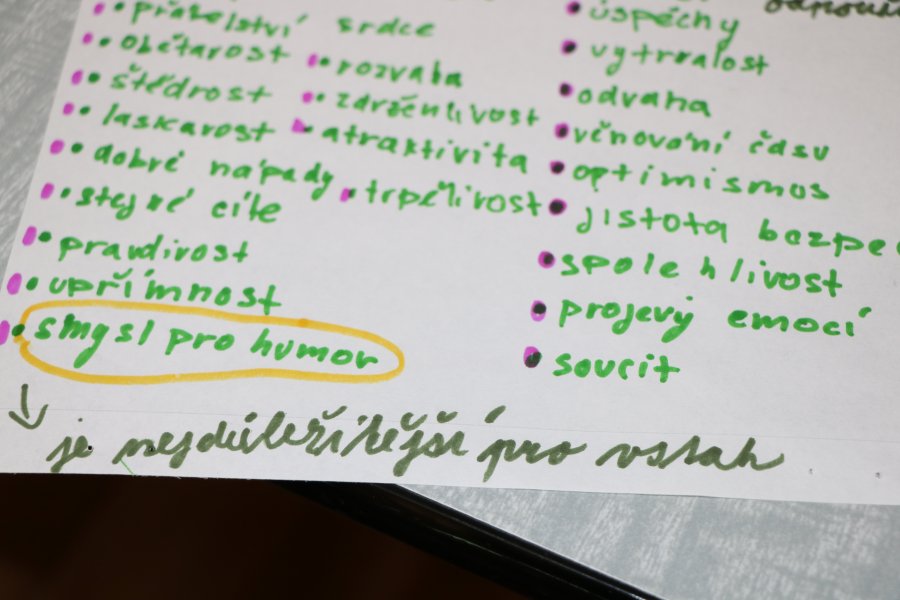 přátelství
obětavost
štědrost
laskavost
dobré nápady
stejné cíle
pravdivost
upřímnost
smysl pro humor
srdce
rozvaha
zdrženlivost
atraktivita
trpělivost
úspěchy
vytrvalost
odvaha
věnování času
optimismos
jistota bezpe
spolehlivost
projevý emocí
soucit
je nejdůležitější pro vstah